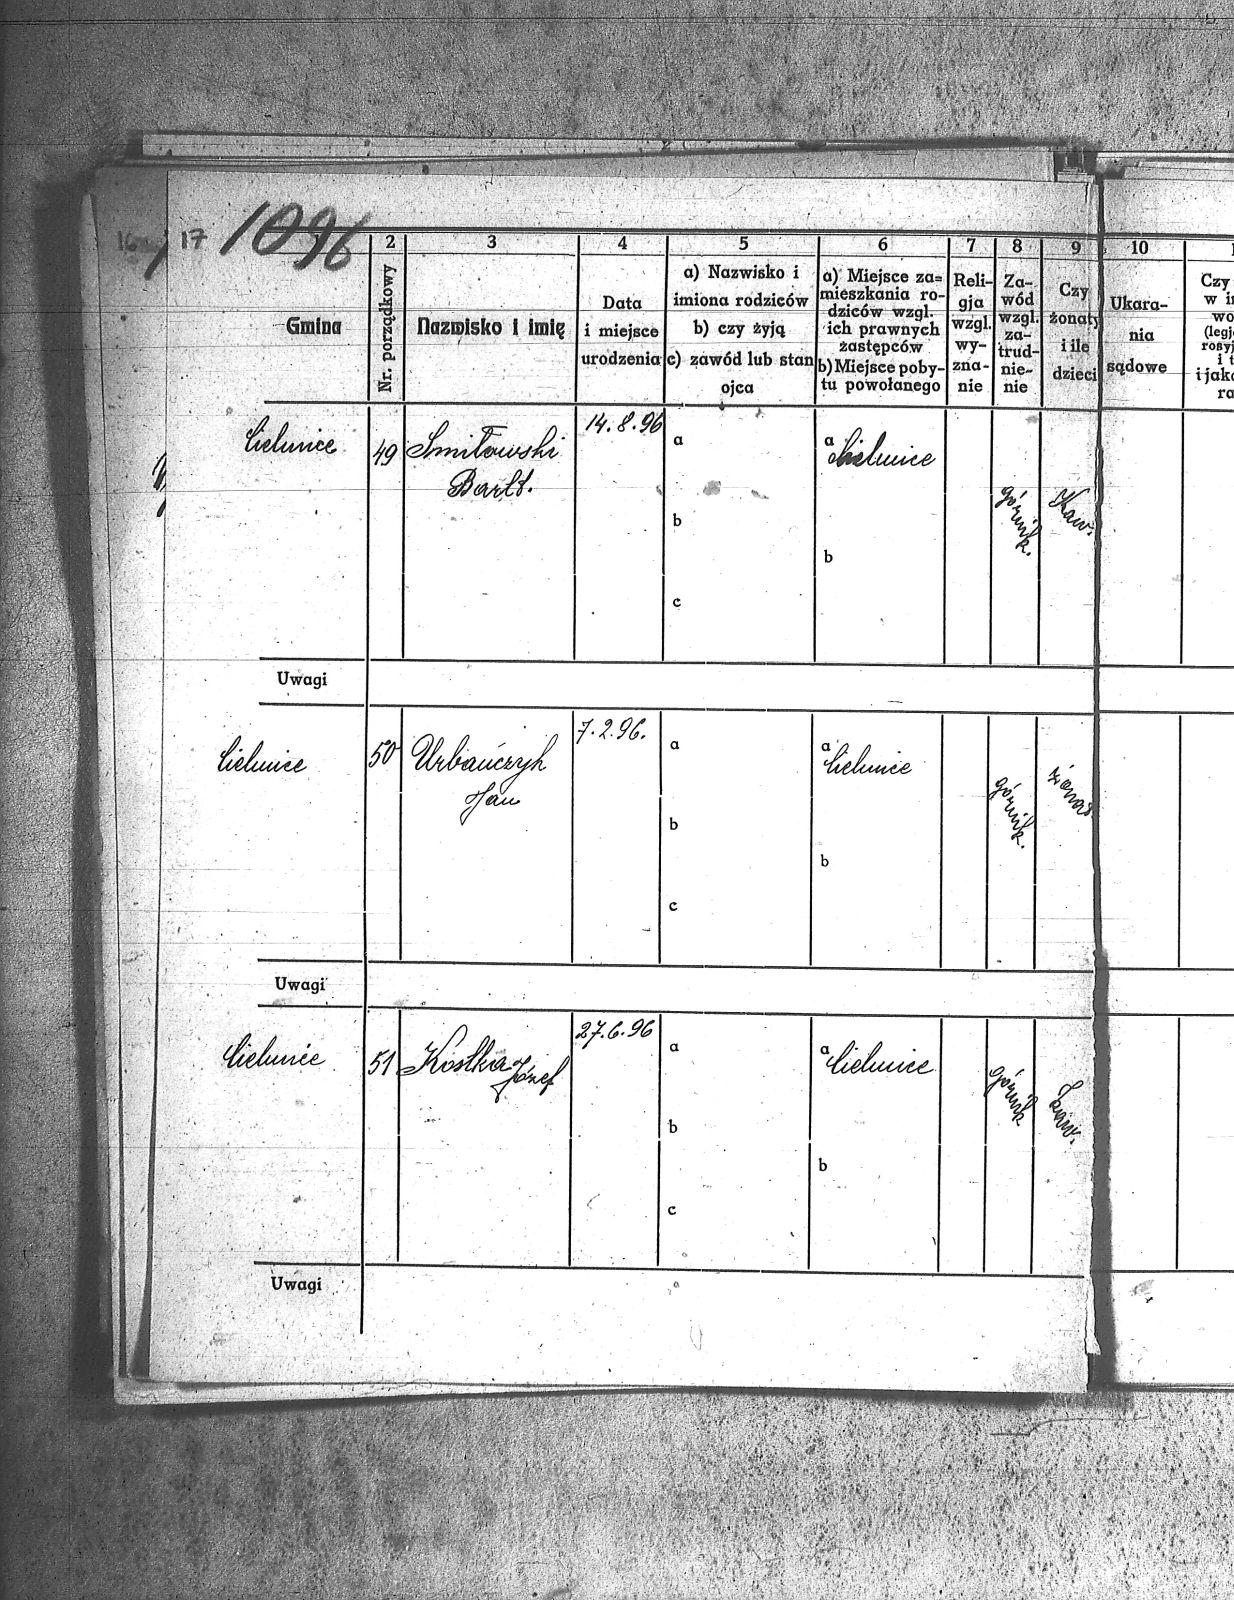 17 1896
2 3 4 5 6 7 8 9 10
Gmina
Nr. porządkowy
Nazwisko i imię
Data
i miejsce
urodzenia
a) Nazwisko i
imiona rodziców
b) czy żyją
c) zawód lub stan
ojca
a) Miejsce za=
mieszkania ro-
dziców wzgl.
ich prawnych
zastępców
b) Miejsce poby-
tu powołanego
Reli-
gja
wzgl.
wy-
zna-
nie
Za-
wód
wzgl.
za-
trud-
nie-
nie
Czy
żonaty
i ile
dzieci
Ukara-
nia
sądowe
Czy
Cielmice 49 Smiłowski
Bartł.
14.8.96
a
b
c
a Cielmice
b
górnik.
Kaw.
Uwagi
Cielmice 50 Urbańczyk
Jan
7.2.96.
a
b
c
a Cielmice
b
górnik.
żonat.
Uwagi
Cielmice 51 Kostka Józef
27.6.96
a
b
c
a Cielmice
b
górnik
kaw.
Uwagi